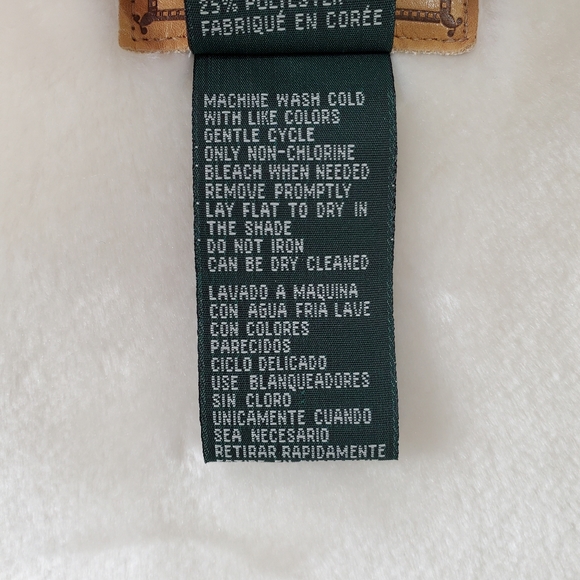 25% POLYESTER
FABRIQUÉ EN CORÉE
MACHINE WASH COLD
WITH LIKE COLORS
GENTLE CYCLE
ONLY NON-CHLORINE
BLEACH WHEN NEEDED
REMOVE PROMPTLY
LAY FLAT TO DRY IN
THE SHADE
DO NOT IRON
CAN BE DRY CLEANED
LAVADO A MAQUINA
CON AGUA FRIA LAVE
CON COLORES
PARECIDOS
CICLO DELICADO
USE BLANQUEADORES
SIN CLORO
UNICAMENTE CUANDO
SEA NECESARIO
RETIRAR RAPIDAMENTE